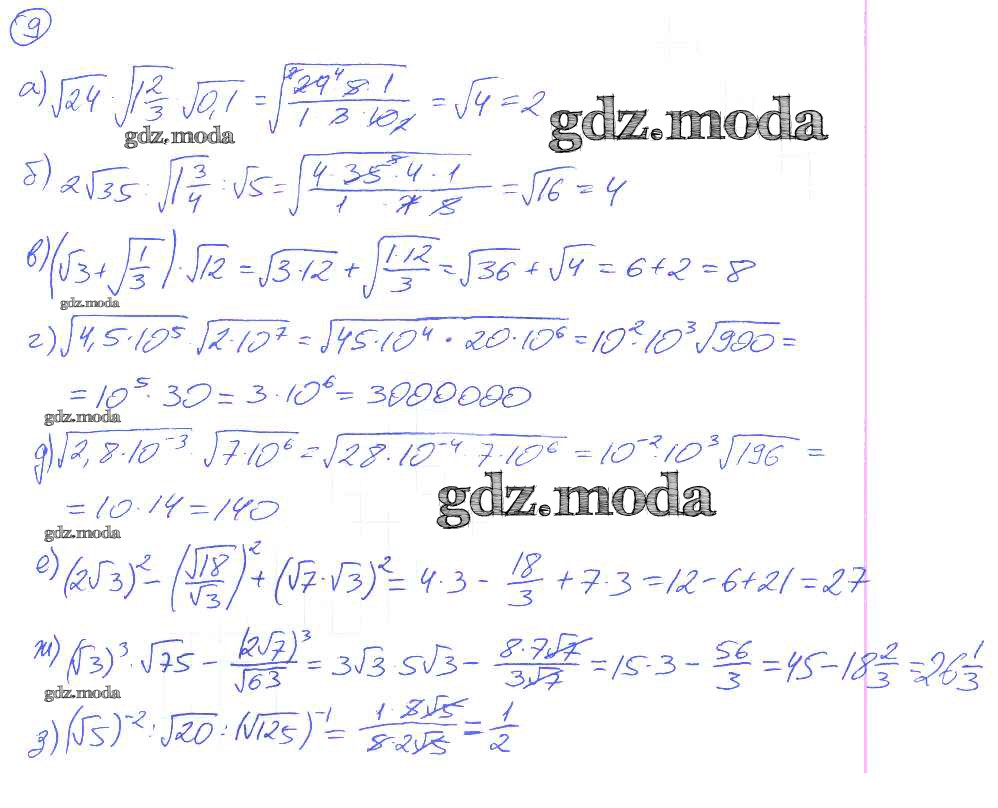 9
а) √24 · √1 2/3 · √0,1 = √(⁸24⁴ 5 · 1 / 1 3 · 10₂) = √4 = 2
gdz.moda
gdz.moda
б) 2√35 : √1 3/4 : √5 = √(4 · 35 · 4 · 1 / 1 · 7 5) = √16 = 4
в) (√3 + √1/3) · √12 = √3·12 + √(1·12/3) = √36 + √4 = 6 + 2 = 8
gdz.moda
г) √4,5·10⁵ · √2·10⁷ = √45·10⁴ · 20·10⁶ = 10² · 10³ √900 =
= 10⁵ · 30 = 3 · 10⁶ = 3000000
gdz.moda
д) √2,8·10⁻³ · √7·10⁶ = √28·10⁻⁴ · 7·10⁶ = 10⁻² · 10³ √196 =
gdz.moda
= 10 · 14 = 140
gdz.moda
е) (2√3)² − (√18/√3)² + (√7 · √3)² = 4 · 3 − 18/3 + 7 · 3 = 12 − 6 + 21 = 27
ж) (√3)³ · √75 − (2√7)³/√63 = 3√3 · 5√3 − 8·7√7/3√7 = 15 · 3 − 56/3 = 45 − 18 2/3 = 26 1/3
gdz.moda
з) (√5)⁻² : √20 : (√125)⁻¹ = 1 · 5√5 / 5 · 2√5 = 1/2